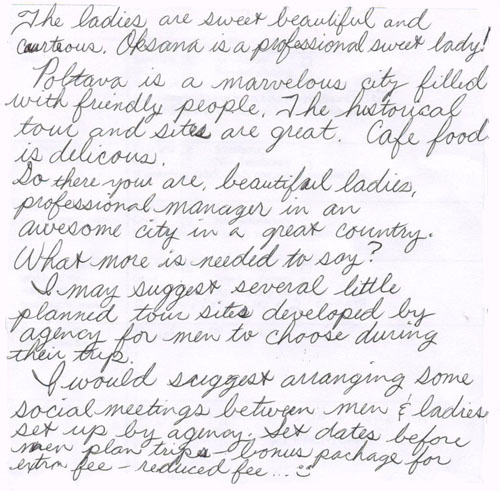 The ladies are sweet beautiful and
courteous. Oksana is a professional sweet lady!
Poltava is a marvelous city filled
with friendly people. The historical
tour and sites are great. Cafe food
is delicous.
So there your are, beautiful ladies,
professional manager in an
awesome city in a great country.
What more is needed to say?
I may suggest several little
planned tour sites developed by
agency for men to choose during
their trip.
I would suggest arranging some
social meetings between men & ladies
set up by agency. Set dates before
men plan trips - bonus package for
extra fee - reduced fee... ☺